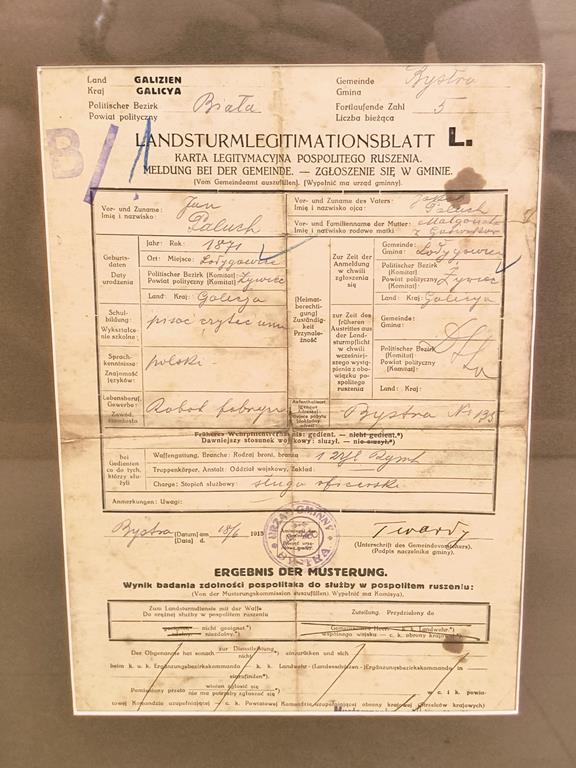 Land GALIZIEN Gemeinde Bystra
Kraj GALICYA Gmina
Politischer Bezirk Biała Fortlaufende Zahl 5
Powiat polityczny Liczba bieżąca
B/1
LANDSTURMLEGITIMATIONSBLATT L.
KARTA LEGITYMACYJNA POSPOLITEGO RUSZENIA.
MELDUNG BEI DER GEMEINDE. — ZGŁOSZENIE SIĘ W GMINIE.
(Vom Gemeindeamt auszufüllen). (Wypełnić ma urząd gminny).
Vor- und Zuname: Jan
Imię i nazwisko: Paluch
Vor- und Zuname des Vaters:
Imię i nazwisko ojca: Paluch
Vor- und Familienname der Mutter: Małgorzata
Imię i nazwisko rodowe matki: z
Geburts-
daten
Daty
urodzenia
Jahr: Rok: 1871
Ort: Miejsce: Łodygowice
Politischer Bezirk [Komitat]:
Powiat polityczny [Komitat]: Żywiec
Land: Kraj: Galicya
[Heimat-
berechti-
gung]
Zuständig-
keit
Przynale-
żność
Zur Zeit
der
Anmeldung
w chwili
zgłoszenia
się
Gemeinde:
Gmina: Łodygowice
Politischer Bezirk
[Komitat]
Powiat polityczny
[Komitat]: Żywiec
Land: Kraj: Galicya
zur Zeit des
früheren
Austrittes aus
der Land-
sturmpflicht
w chwili
wcześniejsze-
go wystą-
pienia z obo-
wiązku po-
spolitego
ruszenia
Gemeinde:
Gmina:
Politischer Bezirk
[Komitat]
Powiat polityczny
[Komitat]:
Land: Kraj:
Schul-
bildung:
Wykształce-
nie szkolne:
pisać czytać umie
Sprach-
kenntnisse:
Znajomość
języków:
polski
Lebensberuf,
Gewerbe:
Zawód,
Robot. fabryn
Bystra No 135
Früheres Wehrpflichtverhältnis: gedient. — nicht gedient.*)
Dawniejszy stosunek wojskowy: służył. — nie służył.*)
bei
Gedienten
co do tych,
którzy słu-
żyli
Waffengattung, Branche: Rodzaj broni, branża
Truppenkörper, Anstalt: Oddział wojskowy, Zakład:
Charge: Stopień służbowy: sługa oficerski
Anmerkungen: Uwagi:
Bystra [Datum] am 18/6 1915
[Data] d.
URZĄD GMINNY
BYSTRA
Twardy
(Unterschrift des Gemeindevorstehers).
(Podpis naczelnika gminy).
ERGEBNIS DER MUSTERUNG.
Wynik badania zdolności pospolitaka do służby w pospolitem ruszeniu:
(Von der Musterungskommission auszufüllen). Wypełnić ma Komisya).
Zum Landsturmdienste mit der Waffe
Do orężnej służby w pospolitem ruszeniu
geeignet. — nicht geeignet.*)
zdolny. — niezdolny.*)
Zuteilung. Przydzielony do
Gemeinsames Heer. — k. k. Landwehr.*)
wspólnego wojska — c. k. obrony krajowej.*)
Der Obgenannte hat sonach zur Dienstleistung einzurücken und sich
nicht*)
beim k. u. k. Ergänzungsbezirkskommando k. k. Landwehr-(Landesschützen-)Ergänzungsbezirkskommando in
einzufinden*).
Pomieniony przeto winien zgłosić się w c. i k. powia-
nie ma potrzeby zgłosić się
towej Komandzie uzupełniającej — c. k. Powiatowej Komendzie uzupełniającej obrony krajowej (strzelców krajowych)